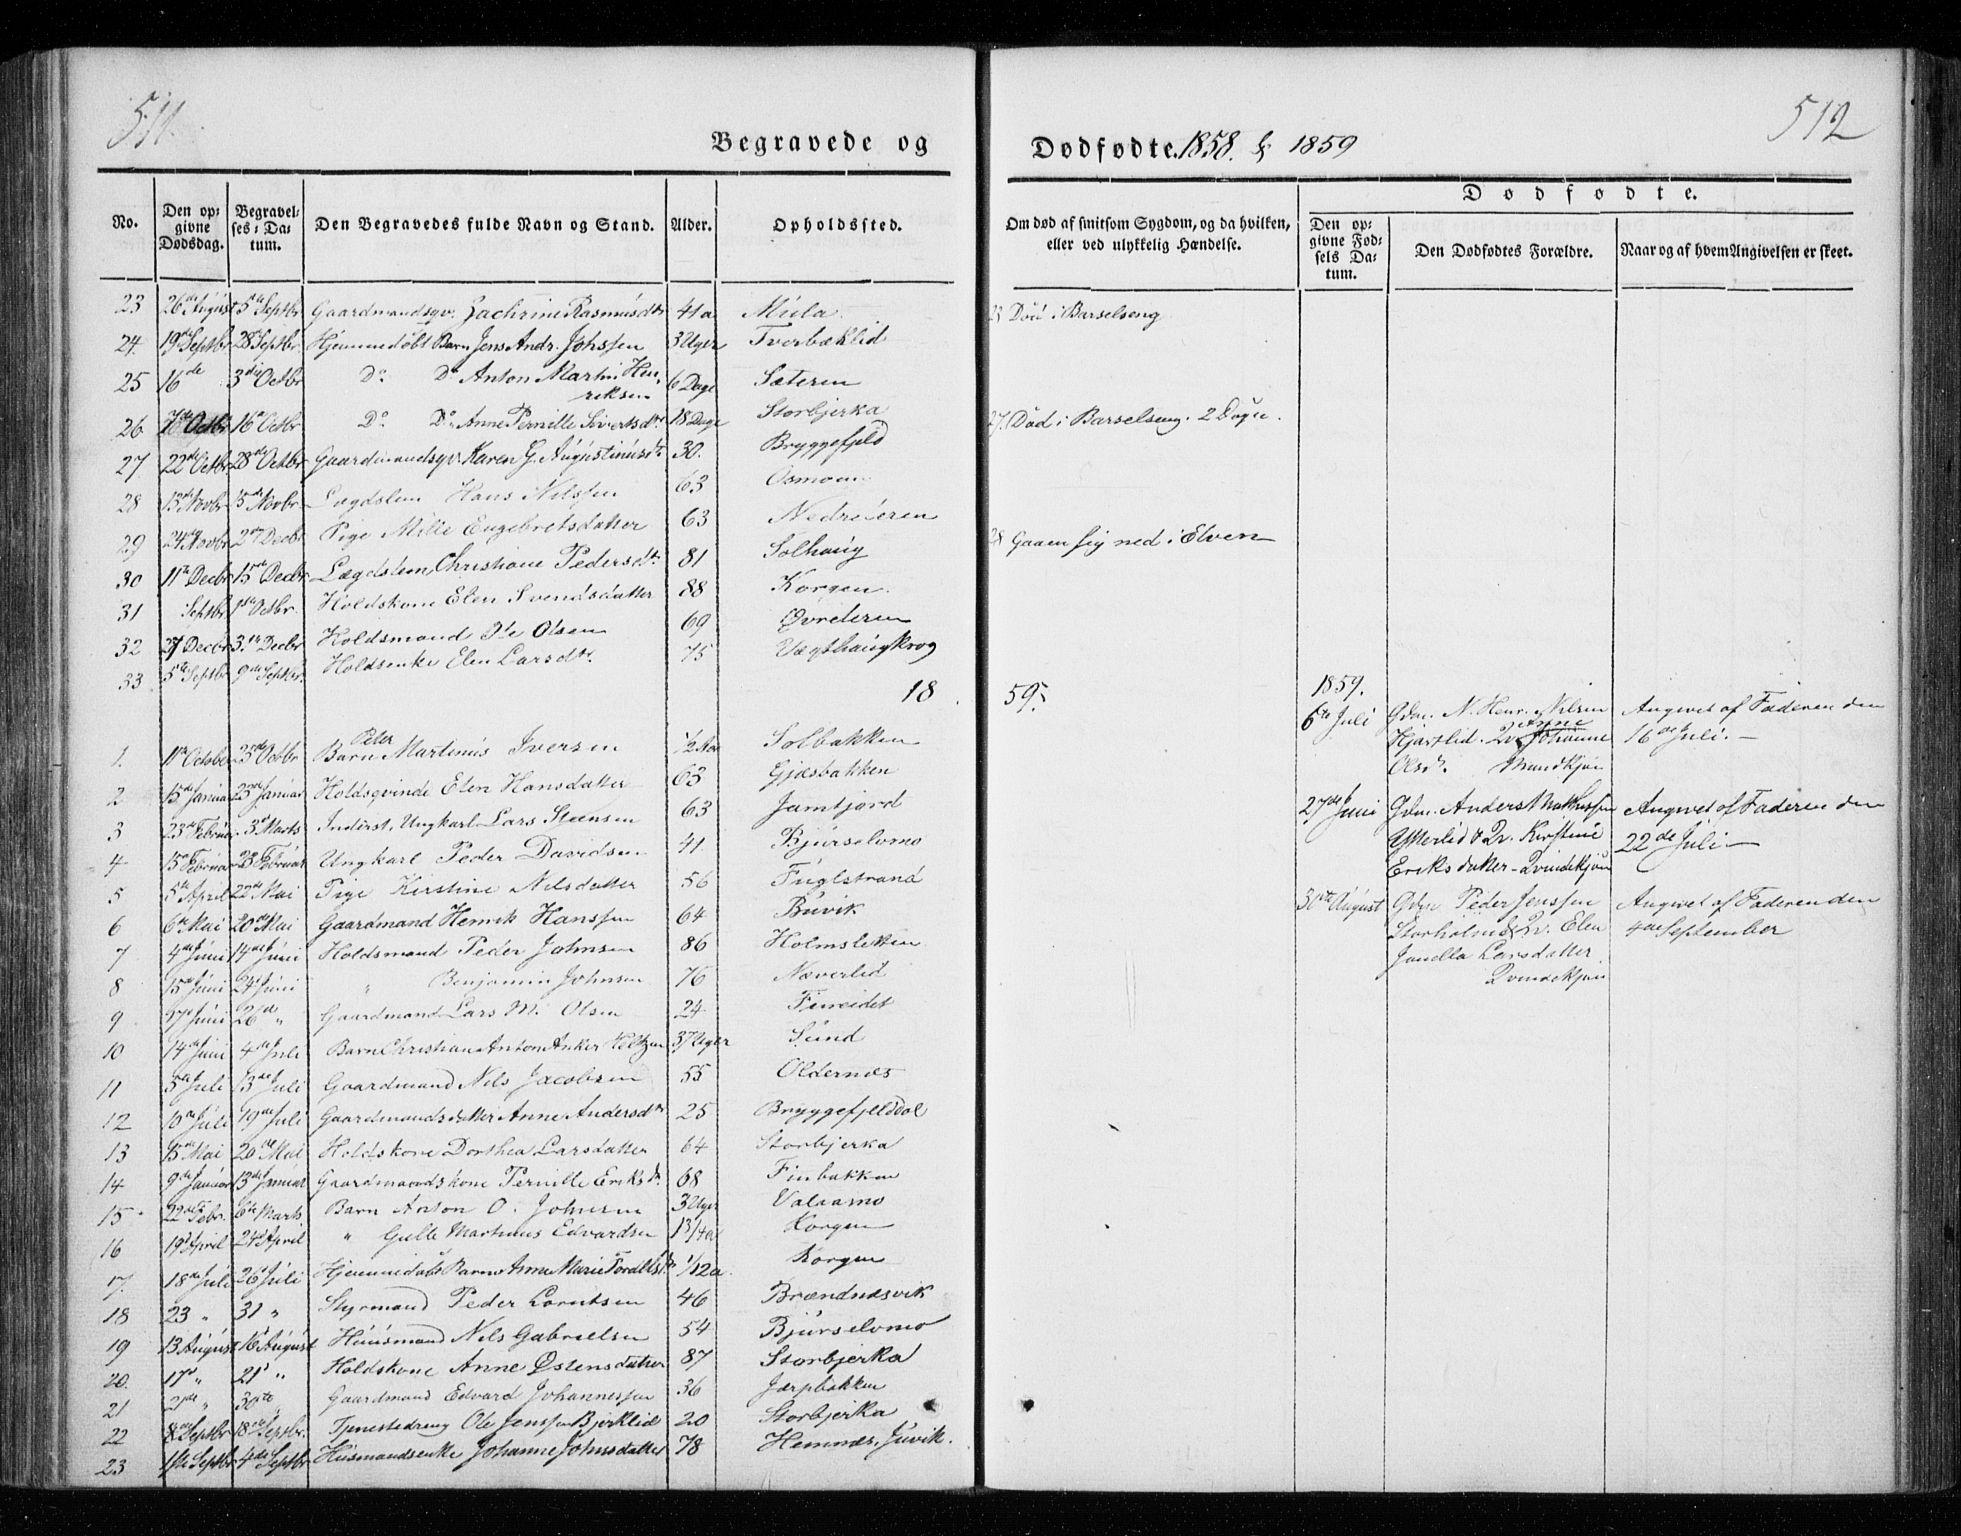 511.
Begravede og
No. | Den opgivne Dødsdag. | Begravelses-Datum. | Den Begravedes fulde Navn og Stand. | Alder. | Opholdssted.
23 26de August 5te Septbr Gaardmandsqv. Zachrine Rasmusdtr 41a Mula
24. 19de Septbr 28 Septbr Hjemmedøbt Barn Jens Andr. Johssen 3 Uger Tverbæklid
25 16de 3die Octbr Do Do Anton Martin Hen-
riksen 6 Dage Sæteren
26 Octbr 16de Octbr Do Do Anne Pernille Sivertsdtr 18 Dage Storbjerka
27 22de Octbr 28de Octbr Gaardmandsqv. Karen G. Augustinusdtr 30. Bryggefjeld
28 13de Novbr 15de Novbr Lægdslem Hans Nilssen 63 Osmoen
29 24de Novbr 27 Decbr Pige Mille Engebretsdatter 63 Nedreleren
30 11te Decbr 15de Decbr Lægdslem Christiane Pedersdtr 81 Solhaug
31 Septbr 1ste Octbr. Holdskone Elen Svendsdatter 88 Korgen.
32 27 Decbr 31te Decbr Holdsmand Ole Olsen 69 Øvreleren
33 5te Septbr 9de Septbr. Holdsenke Elen Larsdtr. 75 Vægthaugkrog
18
1. 11te October 23de Octbr Barn Peter Martinus Iversen 1/2 Aar Solbakken
2 15de Januar 23de Januar Holdsqvinde Elen Hansdatter 63 Gjæsbakken
3 23de Februar 3die Marts Inderst, Ungkarl Lars Steensen 63 Jamtjord
4 15de Februar 23 Februar Ungkarl Peder Davidsen 41 Bjurselvmo
5 5te April 22de Mai Pige Kirstine Nilsdatter 56 Fuglstrand
6 6te Mai 20de Mai Gaardmand Henrik Hanssen 64 Buvik
7 4de Juni 14de Juni Holdsmand Peder Johnsen 86 Holmslekken
8 15de Juni 24de Juni " Benjamin Johnsen 76 Næverlid
9 17de Juni 26de " Gaardmand Lars M. Olsen 24 Fineidet
10 14de Juni 4de Juli Barn Christian Anton Anker Veltzen 37 Uger Sund
11 5te Juli 13de Juli Gaardmand Nils Jacobsen 55 Oldernæs
12 10de Juli 19de Juli Gaardmandsdatter Anne Andersdtr 25 Bryggefjelddal
13 15de Mai 20de Mai Holdskone Dorthea Larsdatter 64 Storbjerka
14 9de Januar 13de Januar Gaardmandskone Pernille Eriksdtr. 68 Finbakken
15 22de Febr. 6te Marts Barn Anton O. Johnsen 3 Uger Valaamo
16 19de April 24de April " Gulle Martinus Edvardsen 1 3/4 a Korgen
17. 18de Juli 26de Juli Hjemmedøbt Barn Anne Marie Toralfsdtr 1/12 a. Korgen
18 23 " 31 " Styrmand Peder Lorntsen 46 Brændnæsvik
19 13 August 16 August Huusmand Nils Gabrielsen 54 Bjurselvmo
20. 17de " 21de " Holdskone Anne Østensdatter 87 Storbjerka
21 21de " 30te " Gaardmand Edvard Johannessen 36 Jærpbakken
22 Septbr 18de Septbr. Tjenestedreng Ole Jenssen Bjerklid 20 Storbjerka
23 1ste Septbr 4de Septbr Husmandsenke Johanne Johnsdatter 78 Hemnæs, Juvik.
512
Dødfødte. 1858. & 1859
Om død af smitsom Sygdom, og da hvilken, eller ved ulykkelig Hændelse. | Dødfødte.
Den opgivne Fødsels Datum. | Den Dødfødtes Forældre. | Naar og af hvem Angivelsen er skeet.
23 Død i Barselseng
27. Død i Barselseng. 2 Døgn.
28 Gaaen sig ned i Elven
59.
1859.
6te Juli Gdm. N. Henr. Nilsen Angivet af Faderen den
Hjartlid. Qv. Anne Johanne 16de Juli. —
Olsdtr. Mandkjøn
27de Juni Gdm. Anders Mathissen Angivet af Faderen den
Ytterlid & Qv. Kirstine 22de Juli —
Eriksdatter - Qvindekjøn
30te August Gdm Peder Jenssen Angivet af Faderen den
Storholm & Qv. Elen 4de September
Janella Larsdatter.
Qvindekjøn